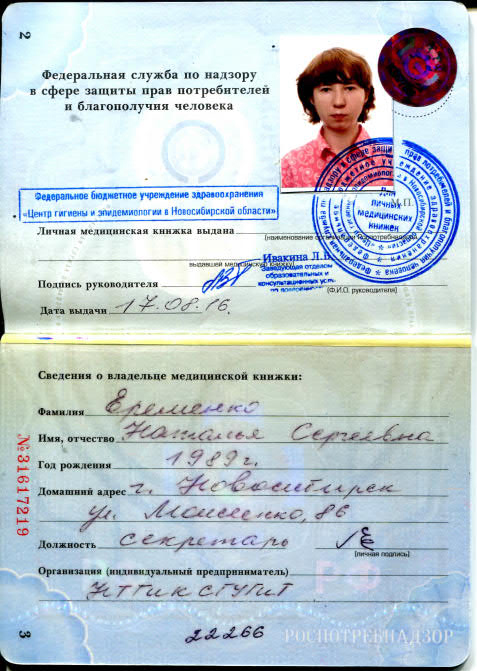 2
Федеральная служба по надзору
в сфере защиты прав потребителей
и благополучия человека
Федеральное бюджетное учреждение здравоохранения
«Центр гигиены и эпидемиологии в Новосибирской области»
Для
личных
медицинских
книжек
М.П.
Личная медицинская книжка выдана
(наименование организации Роспотребнадзора,
выдавшей медицинскую книжку)
Ивакина Л.В.
Заведующая отделом
образовательных и
консультационных услуг
Подпись руководителя
(Ф.И.О. руководителя)
Дата выдачи 17.08.16.
Сведения о владельце медицинской книжки:
Фамилия Еременко
Имя, отчество Наталья Сергеевна
Год рождения 1989г.
Домашний адрес г. Новосибирск
ул. 86
Должность секретарь
(личная подпись)
Организация (индивидуальный предприниматель)
№31617219
3
22266
РОСПОТРЕБНАДЗОР